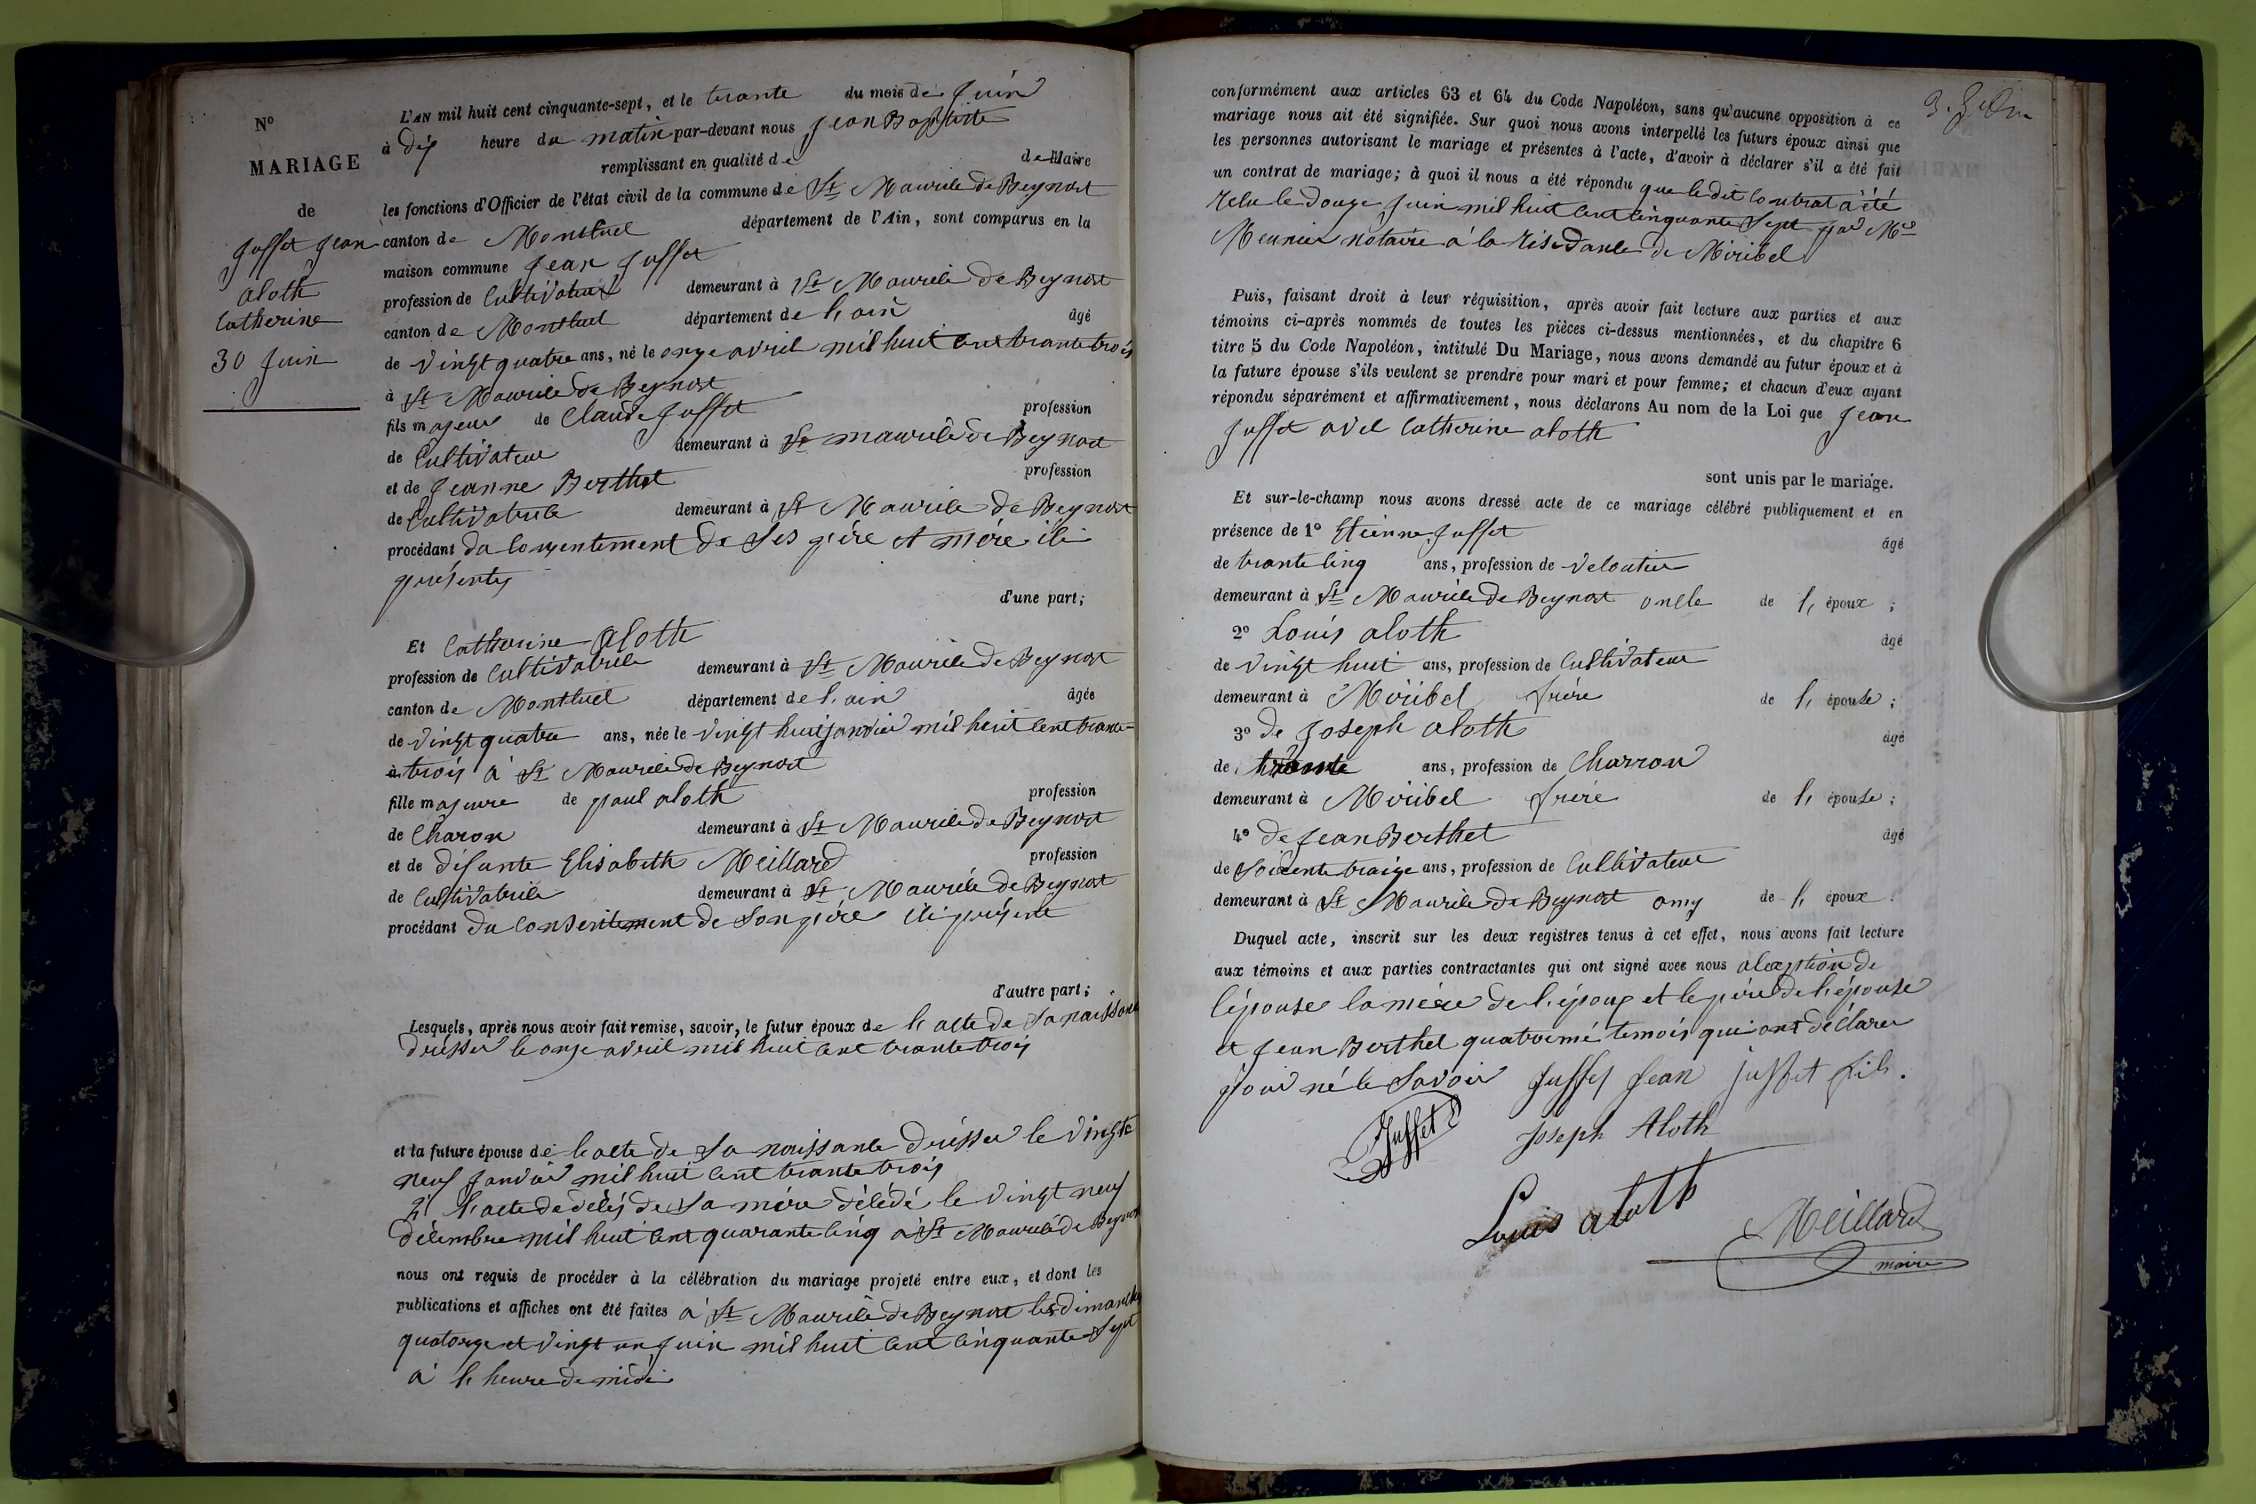 N°
MARIAGE
de
Juffet Jean
aloth
Catherine
30 Juin
L'AN mil huit cent cinquante-sept, et le trante du mois de Juin
à dix heure du matin par-devant nous Jean Baptiste
remplissant en qualité de de Maire
les fonctions d'Officier de l'état civil de la commune de St Maurice de Beynost
canton de Montluel département de l'Ain, sont comparus en la
maison commune Jean Juffet
profession de Cultivateur demeurant à St Maurice de Beynost
canton de Montluel département de l'ain âgé
de vingt quatre ans, né le onze avril mil huit cent trante trois
à St Maurice de Beynost
fils majeur de Claude Juffet profession
de Cultivateur demeurant à St maurice de Beynost
et de Jeanne Berthet profession
de Cultivatrice demeurant à St Maurice de Beynost
procédant du consentement de ses père et mère ici
présents
d'une part;
Et Catherine aloth
profession de Cultivatrice demeurant à St Maurice de Beynost
canton de Montluel département de l'ain âgée
de vingt quatre ans, née le vingt huit janvier mil huit cent trante=
à trois à St Maurice de Beynost
fille majeure de paul aloth profession
de Charon demeurant à St Maurice de Beynost
et de défunte Elisabeth Meillard profession
de Cultivatrice demeurant à St Maurice de Beynost
procédant du consentement de son père ici présent
d'autre part;
Lesquels, après nous avoir fait remise, savoir, le futur époux de l'acte de sa naissance
dressée le onze avril mil huit cent trante trois
et la future épouse de l'acte de sa naissance dressée le vingt
neuf Janvier mil huit cent trante trois
2° l'acte de décès de sa mère décédé le vingt neuf
décembre mil huit cent quarante cinq à St Maurice de Beynost
nous ont requis de procéder à la célébration du mariage projeté entre eux, et dont les
publications et affiches ont été faites à St Maurice de Beynost les dimanches
quatorze et vingt un Juin mil huit cent cinquante sept
à l'heure de midi
conformément aux articles 63 et 64 du Code Napoléon, sans qu'aucune opposition à ce
mariage nous ait été signifiée. Sur quoi nous avons interpellé les futurs époux ainsi que
les personnes autorisant le mariage et présentes à l'acte, d'avoir à déclarer s'il a été fait
un contrat de mariage; à quoi il nous a été répondu que le dit contrat a été
recu le douze Juin mil huit cent cinquante sept par Me
Meunier notaire à la risidance de Miribel
Puis, faisant droit à leur réquisition, après avoir fait lecture aux parties et aux
témoins ci-après nommés de toutes les pièces ci-dessus mentionnées, et du chapitre 6
titre 5 du Code Napoléon, intitulé Du Mariage, nous avons demandé au futur époux et à
la future épouse s'ils veulent se prendre pour mari et pour femme; et chacun d'eux ayant
répondu séparément et affirmativement, nous déclarons Au nom de la Loi que Jean
Juffet avec Catherine aloth
sont unis par le mariage.
Et sur-le-champ nous avons dressé acte de ce mariage célébré publiquement et en
présence de 1° Etienne Juffet âgé
de trante cinq ans, profession de veloutier
demeurant à St Maurice de Beynost oncle de l' époux ;
2° Louis aloth âgé
de vingt huit ans, profession de Cultivateur
demeurant à Miribel frère de l' épouse ;
3° de Joseph aloth âgé
de trante ans, profession de Charron
demeurant à Miribel frere de l' épouse ;
4° de Jean Berthet âgé
de soicente traize ans, profession de Cultivateur
demeurant à St Maurice de Beynost amy de l' époux .
Duquel acte, inscrit sur les deux registres tenus à cet effet, nous avons fait lecture
aux témoins et aux parties contractantes qui ont signé avec nous alexption de
l'épouse la mère de l'époux et le père de l'épouse
et Jean Berthet quatrième temoin qui ont déclarer
pour né le savoir Juffet Jean juffet fils.
Juffet
Joseph Aloth
Louis aloth
Meillard
maire